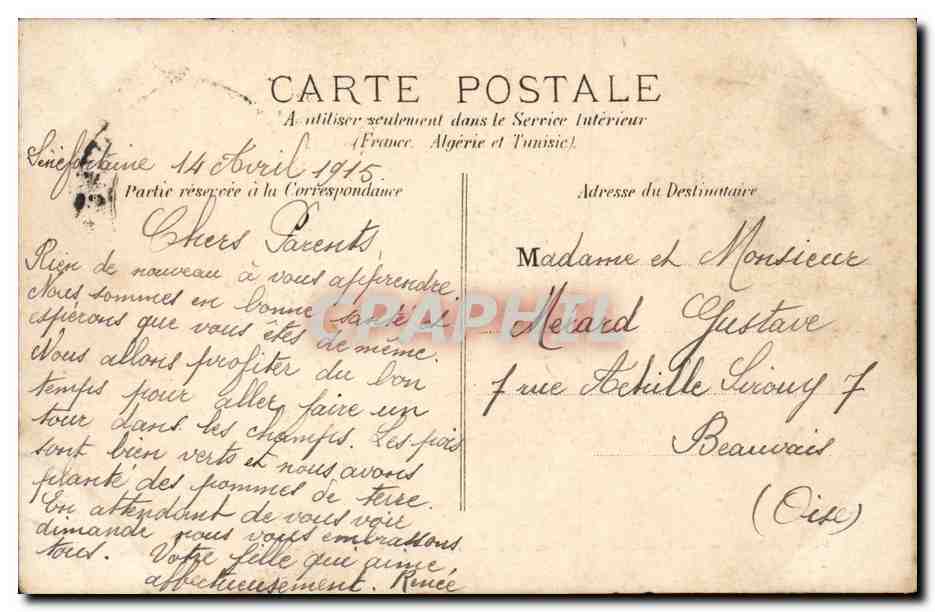 CARTE POSTALE
A utiliser seulement dans le Service Intérieur
(France, Algérie et Tunisie).
Sénéfontaine 14 Avril 1915
Partie réservée à la Correspondance
Chers Parents
Rien de nouveau à vous apprendre
Nous sommes en bonne santé et
espérons que vous êtes de même.
Nous allons profiter du bon
temps pour aller faire un
tour dans les champs. Les pois
sont bien verts et nous avons
planté des pommes de terre.
En attendant de vous voir
dimande nous vous embrassons
tous. Votre fille qui aime
affectueusement. Renée
Adresse du Destinataire
Madame et Monsieur
Merard Gustave
7 rue Achille Sirouy 7
Beauvais
(Oise)
CPAPHIL